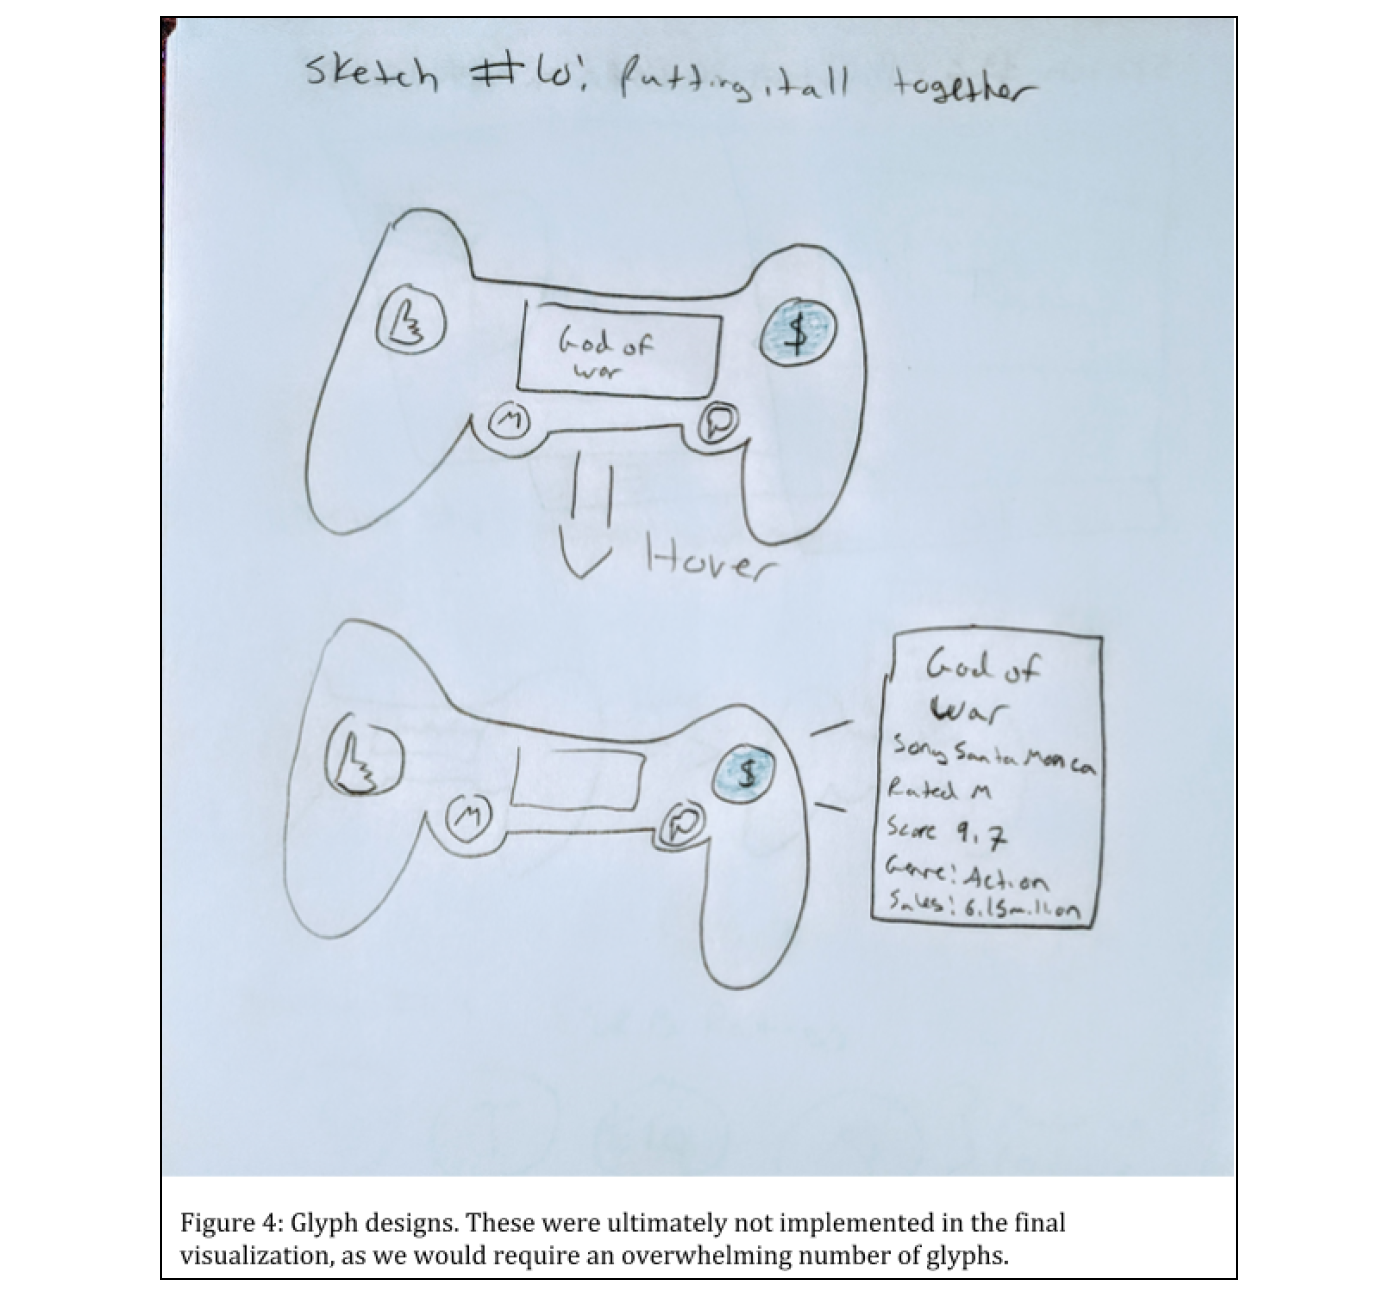 Sketch #6: Putting it all together
$
God of
war
M
Hover
$
M
God of
war
Sony Santa Monica
Rated M
Score 9.7
Genre: Action
Sales: 6.15 million
Figure 4: Glyph designs. These were ultimately not implemented in the final
visualization, as we would require an overwhelming number of glyphs.